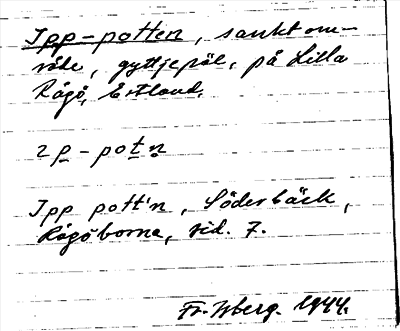 Ipp-potten, sankt om-
råde, gyttjepöl, på Lilla
Rågö, Estland.
ɩp-potn
Ipp pott'n, Söderbäck,
Rågöborna, sid. 7.
Fr. Isberg. 1944.